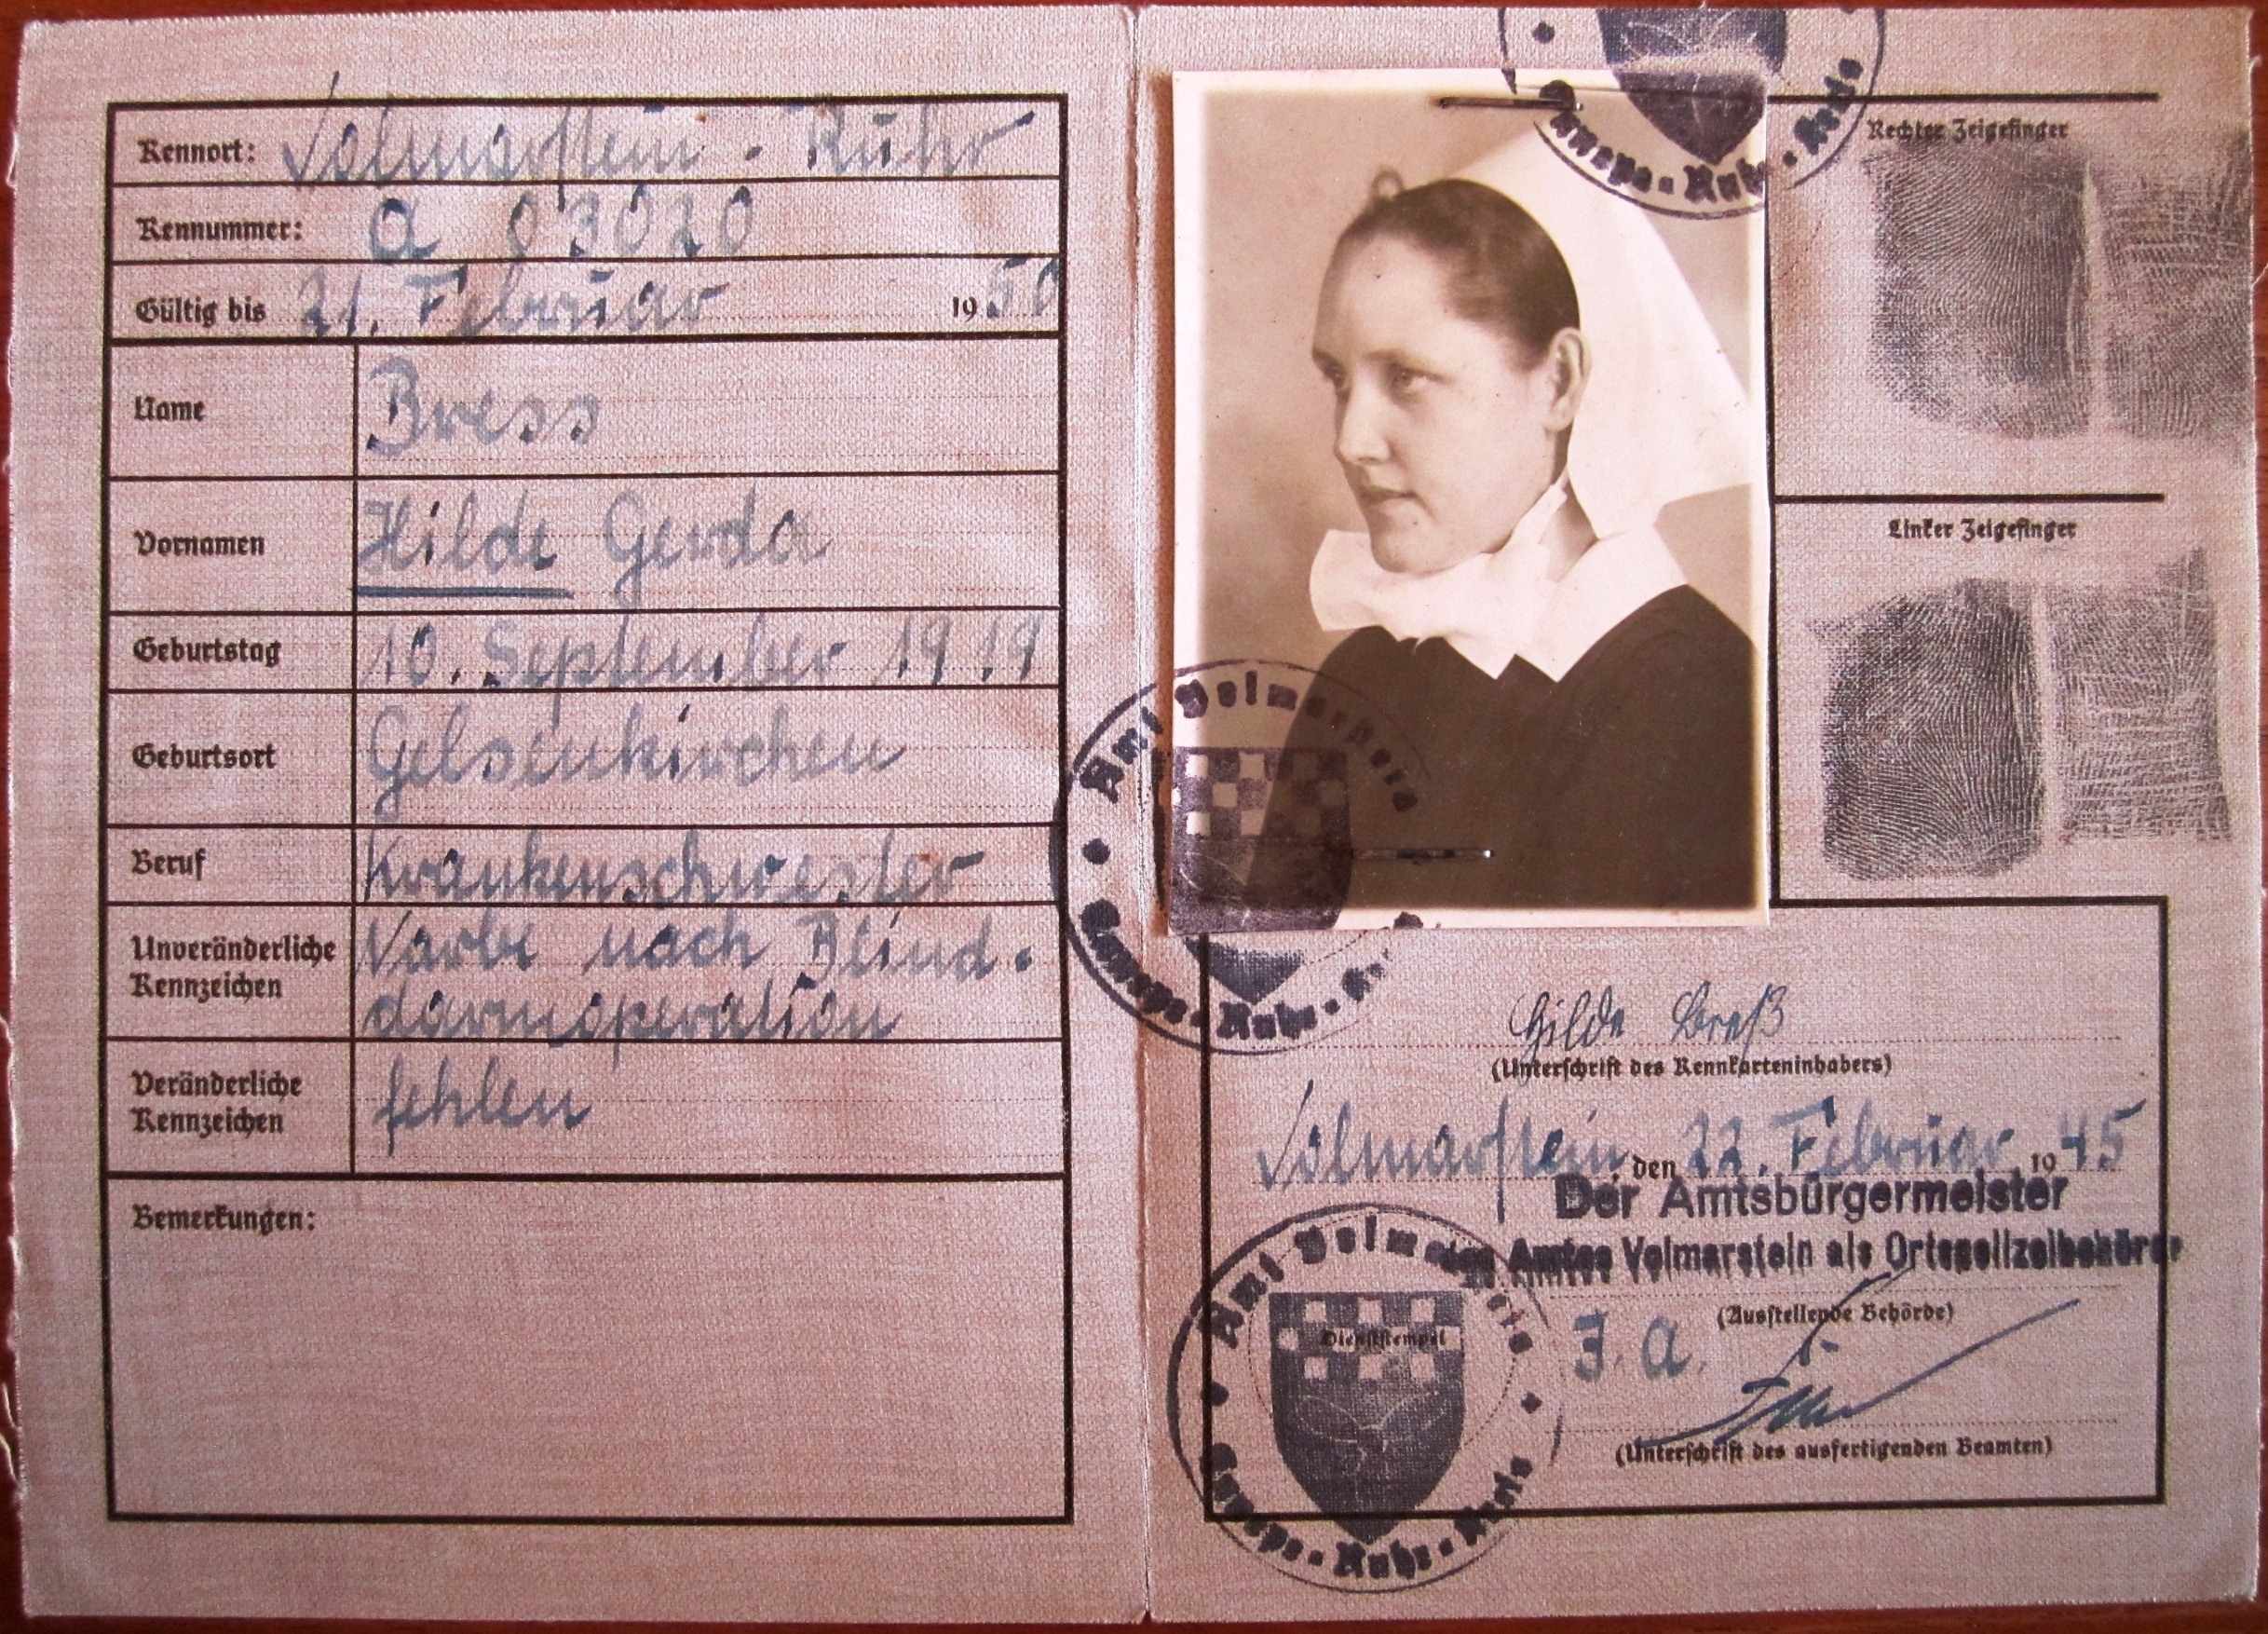 Kennort: Volmarstein - Ruhr
Kennummer: A 03020
Gültig bis 21. Februar 1950
Name Bress
Vornamen Hilde Gerda
Geburtstag 10. September 1919
Geburtsort Gelsenkirchen
Beruf Krankenschwester
Unveränderliche Kennzeichen Narbe nach Blind-
darmoperation
Veränderliche Kennzeichen fehlen
Bemerkungen:
Ennepe-Ruhr-Kreis
Rechter Zeigefinger
Linker Zeigefinger
Amt Volmarstein
Ennepe-Ruhr-Kreis
Hilde Breß
(Unterschrift des Kennkarteninhabers)
Volmarstein, den 22. Februar 1945
Der Amtsbürgermeister
des Amtes Volmarstein als Ortspolizeibehörde
(Ausstellende Behörde)
Amt Volmarstein
Dienststempel
Ennepe-Ruhr-Kreis
I. A.
(Unterschrift des ausfertigenden Beamten)